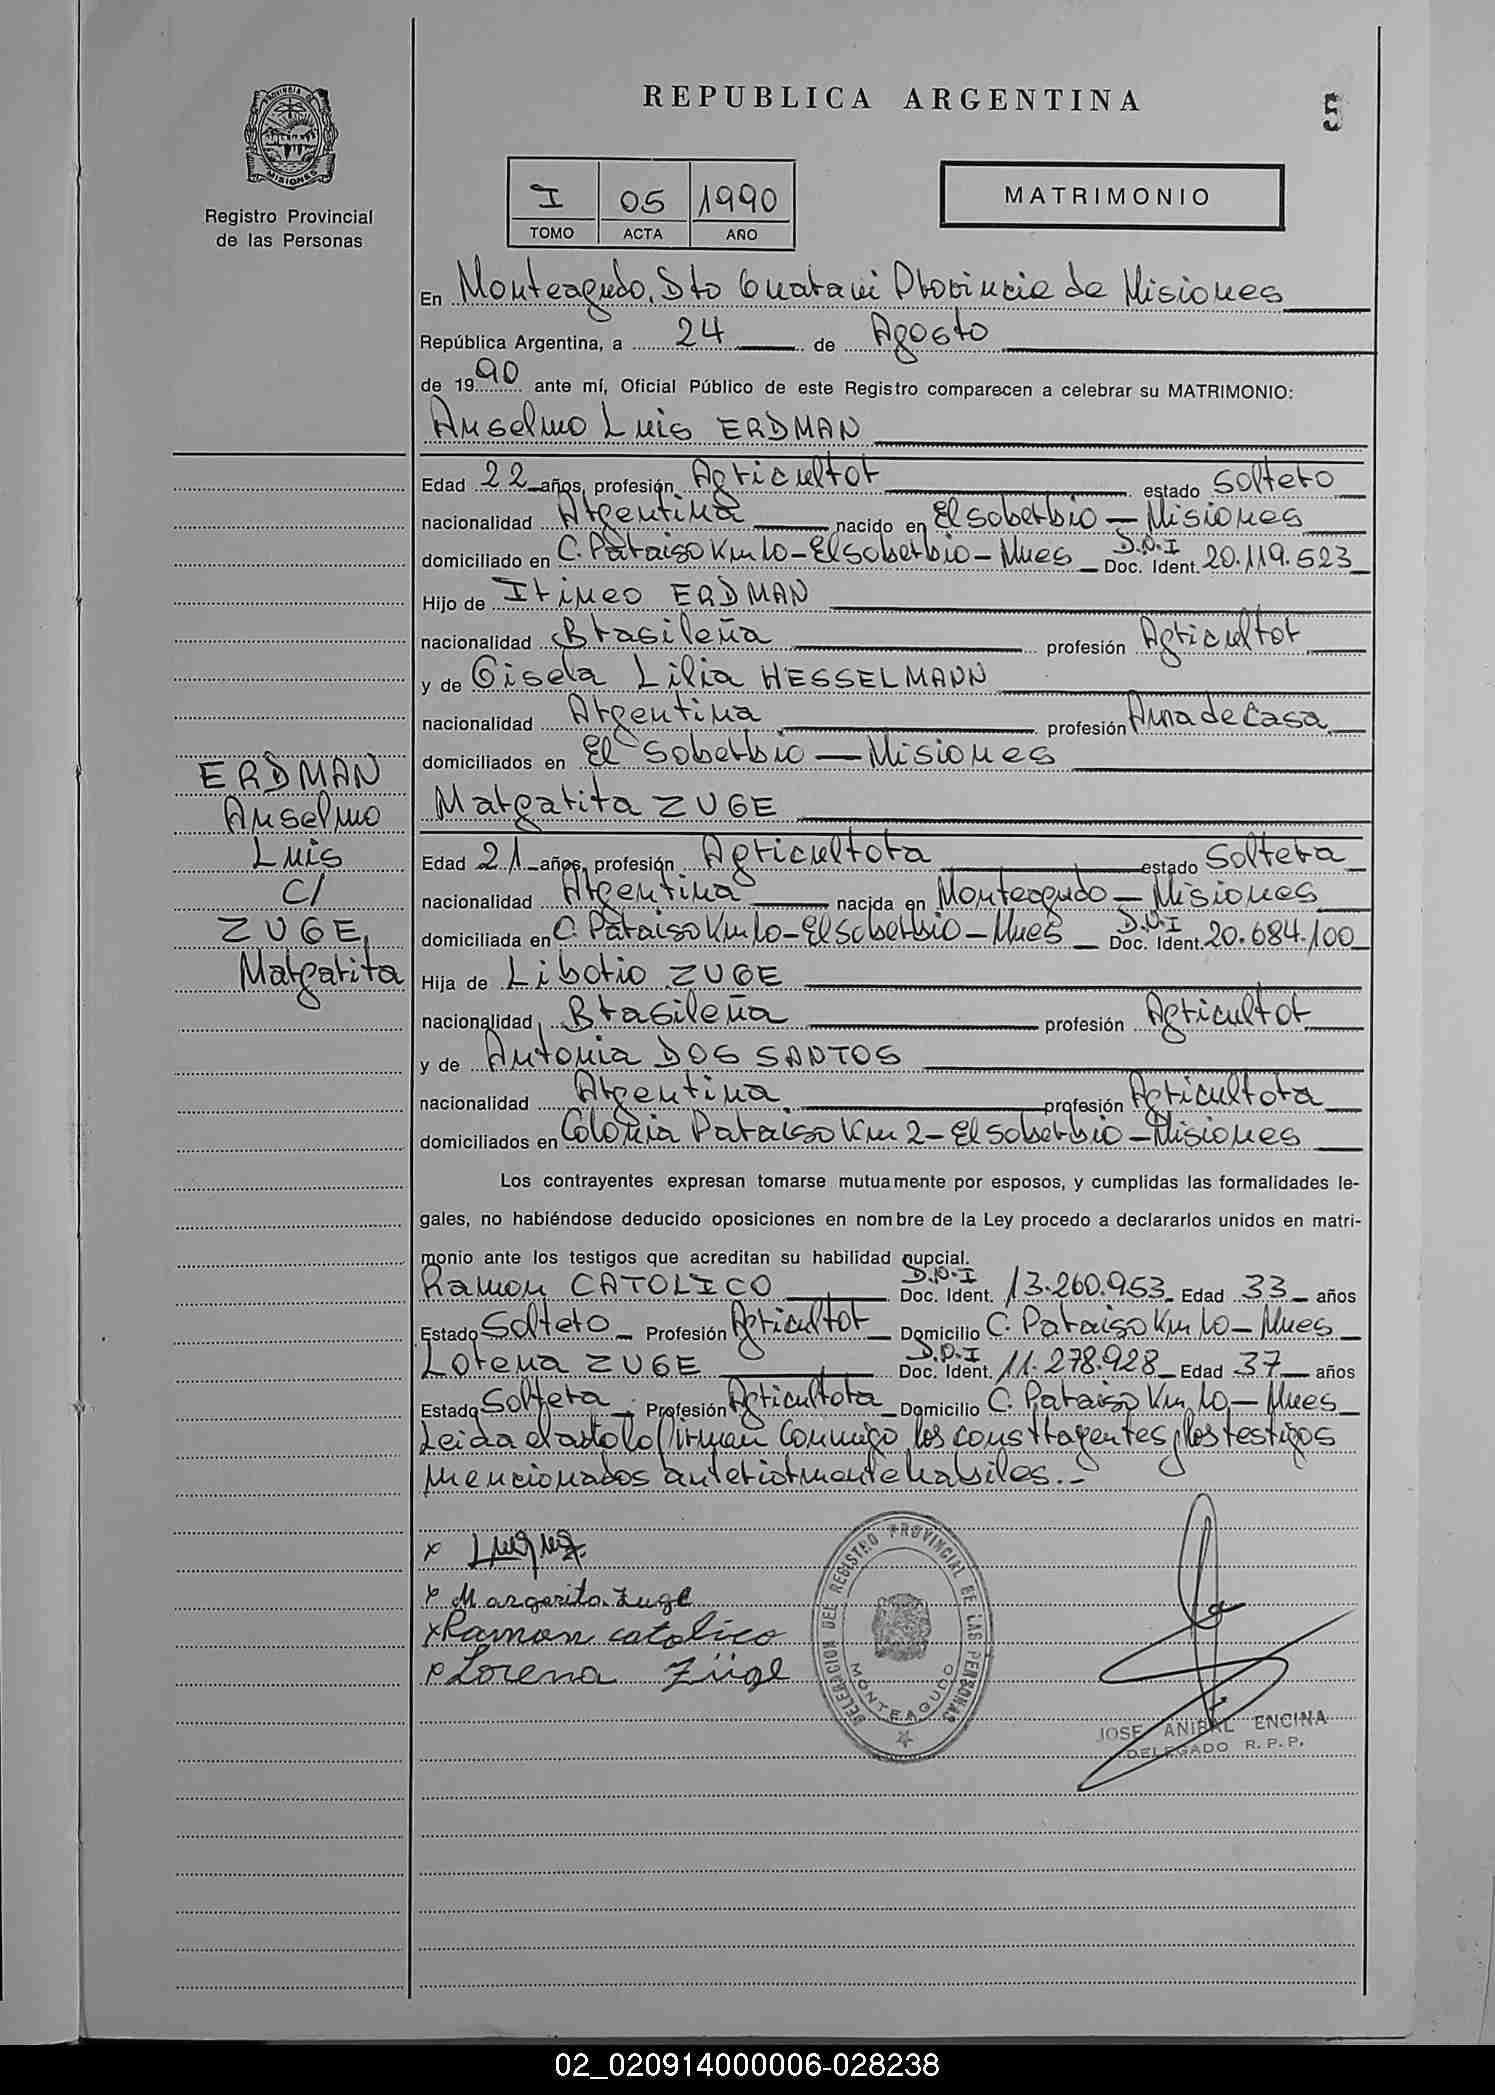 REPUBLICA ARGENTINA
5
PROVINCIA DE
MISIONES
Registro Provincial
de las Personas
I 05 1990
TOMO ACTA AÑO
MATRIMONIO
En Monteagudo, Dto Guarani Provincia de Misiones
República Argentina, a 24 de Agosto
de 1990 ante mí, Oficial Público de este Registro comparecen a celebrar su MATRIMONIO:
Anselmo Luis ERDMAN
Edad 22 años, profesión Agricultor estado Soltero
nacionalidad Argentina nacido en El soberbio - Misiones
domiciliado en C. Paraiso Km 10 - El soberbio - Mnes D.N.I Doc. Ident. 20.119.523
Hijo de Irineo ERDMAN
nacionalidad Brasileña profesión Agricultor
y de Gisela Lilia HESSELMANN
nacionalidad Argentina profesión Ama de Casa
domiciliados en El Soberbio - Misiones
Margarita ZUGE
Edad 21 años, profesión Agricultora estado Soltera
nacionalidad Argentina nacida en Monteagudo - Misiones
domiciliada en C. Paraiso Km 10 - El soberbio - Mnes D.N.I Doc. Ident. 20.684.100
Hija de Liborio ZUGE
nacionalidad Brasileña profesión Agricultor
y de Antonia DOS SANTOS
nacionalidad Argentina profesión Agricultora
domiciliados en Colonia Paraiso Km 2 - El soberbio - Misiones
Los contrayentes expresan tomarse mutuamente por esposos, y cumplidas las formalidades le-
gales, no habiéndose deducido oposiciones en nombre de la Ley procedo a declararlos unidos en matri-
monio ante los testigos que acreditan su habilidad nupcial.
Ramon CATOLICO D.N.I Doc. Ident. 13.260.953 Edad 33 años
Estado Soltero Profesión Agricultor Domicilio C. Paraiso Km 10 - Mnes
Lorena ZUGE D.N.I Doc. Ident. 11.278.928 Edad 37 años
Estado Soltera Profesión Agricultora Domicilio C. Paraiso Km 10 - Mnes
Leida el acto lo firman conmigo los constragentes y los testigos
mencionados anteriormente habiles.-
ERDMAN
Anselmo
Luis
C/
ZUGE,
Margarita
x
x Margarita Zuge
x Ramon catolico
x Lorena Züge
DELEGACION DEL REGISTRO PROVINCIAL DE LAS PERSONAS
MONTEAGUDO
JOSE ANIBAL ENCINA
DELEGADO R.P.P.
02_020914000006-028238